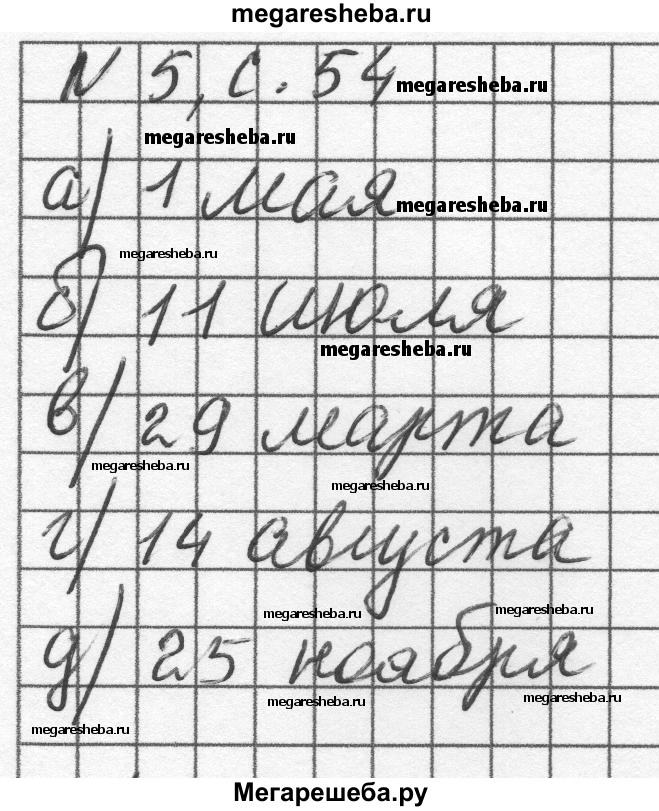 megaresheba.ru
N 5, с. 54 megaresheba.ru
megaresheba.ru
а) 1 мая megaresheba.ru
megaresheba.ru
б) 11 июля
megaresheba.ru
в) 29 марта
megaresheba.ru
megaresheba.ru
г) 14 августа
megaresheba.ru
megaresheba.ru
д) 25 ноября
megaresheba.ru
megaresheba.ru
megaresheba.ru
Мегарешеба.ру